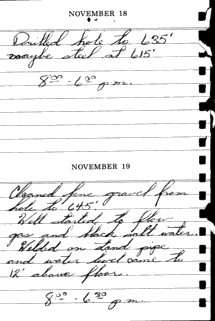 NOVEMBER 18
Drilled hole to 635'
maybe steel at 615'
8⁰⁰ - 6³⁰ p.m.
NOVEMBER 19
Cleaned fine gravel from
hole to 645'
Well started to flow
gas and black salt water.
Welded on stand pipe
and water level came to
12' above floor.
8⁰⁰ - 6³⁰ p.m.